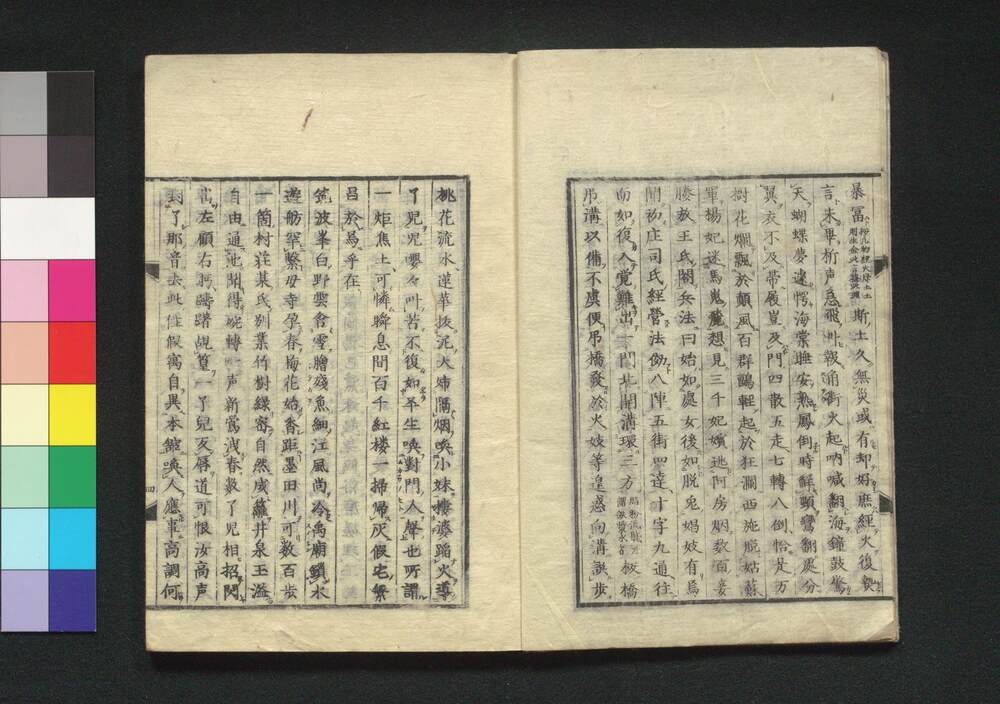 暴富斯土久無災或有却好庶經火復與
言未畢析声急飛州報角街火起吶喊翻海鐘鼓驚
天蝴蝶夢遽愕海棠睡安熟鳳倒時鮮頭鸞翻處分
翼衣不及帯履豈及門四散五走七轉八倒恰是万
樹花爛飄於顛風百群鷗輕起於狂瀾西施脱姑蘇
軍楊妃迷馬嵬麓想見三千妃嬪逃阿房烟数百妾
媵教王氏閣兵法曰始如處女後如脱兎娼妓有焉
聞初庄司氏經營法倣八陣五街四達十字九通往
而如復人覚難出一門北開溝環三方板橋
吊溝以備不虞便吊橋發於火妓等遑惑向溝訣步
桃花流水蓮華抜泥大姉隔烟喚小妹摟婆踏火導
了兒兒嚶々叫苦不復如平生喚對門人聲也所謂
一炬焦土可憐瞬息間百千紅楼一掃帰灰假宅繁
昌於焉乎在
筑波峯白野雲含雪膾殘魚細江風尚冷禹廟鎖水
遊舫罕繋母寺孕春梅花始香距墨田川可数百歩
一箇村荘某氏別業竹樹緑密自然成籬井泉玉溢
自由通池聞得宛轉一声新鶯洩春数了兒相招閃
出左顧右眄躊躇覘篁一了兒忽唇道可恨汝高声
封了那音去此住假寓自異本舘喚人應事高調何
四